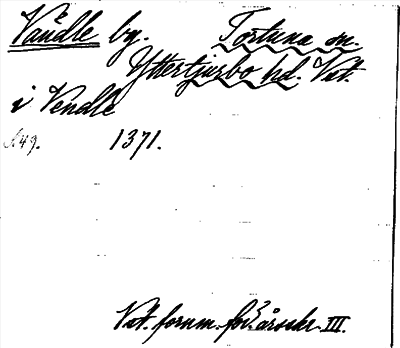 Vändle by. Tortuna sn.
Yttertjurbo hd. Vst.
i Vendle
1371.
Vst. fornm. för. årsskr. III.